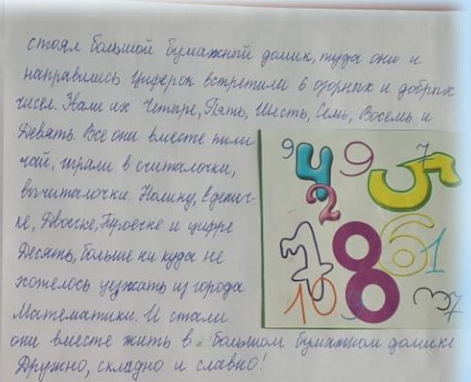 стоял большой бумажный домик, туда они и
направились. Циферок встретили 6 озорных и добрых
чисел. Звали их Четыре, Пять, Шесть, Семь, Восемь и
Девять. Все они вместе пили
чай, играли в считалочки,
вычиталочки. Нолику, Единич-
ке, Двоечке, Троечке и цифре
Десять, больше ни куда не
хотелось уезжать из города
Математики. И стали
они вместе жить в большом бумажном домике
Дружно, складно и славно!
9 4 9 7 5
2
1 8 6 1
10 3 3 7